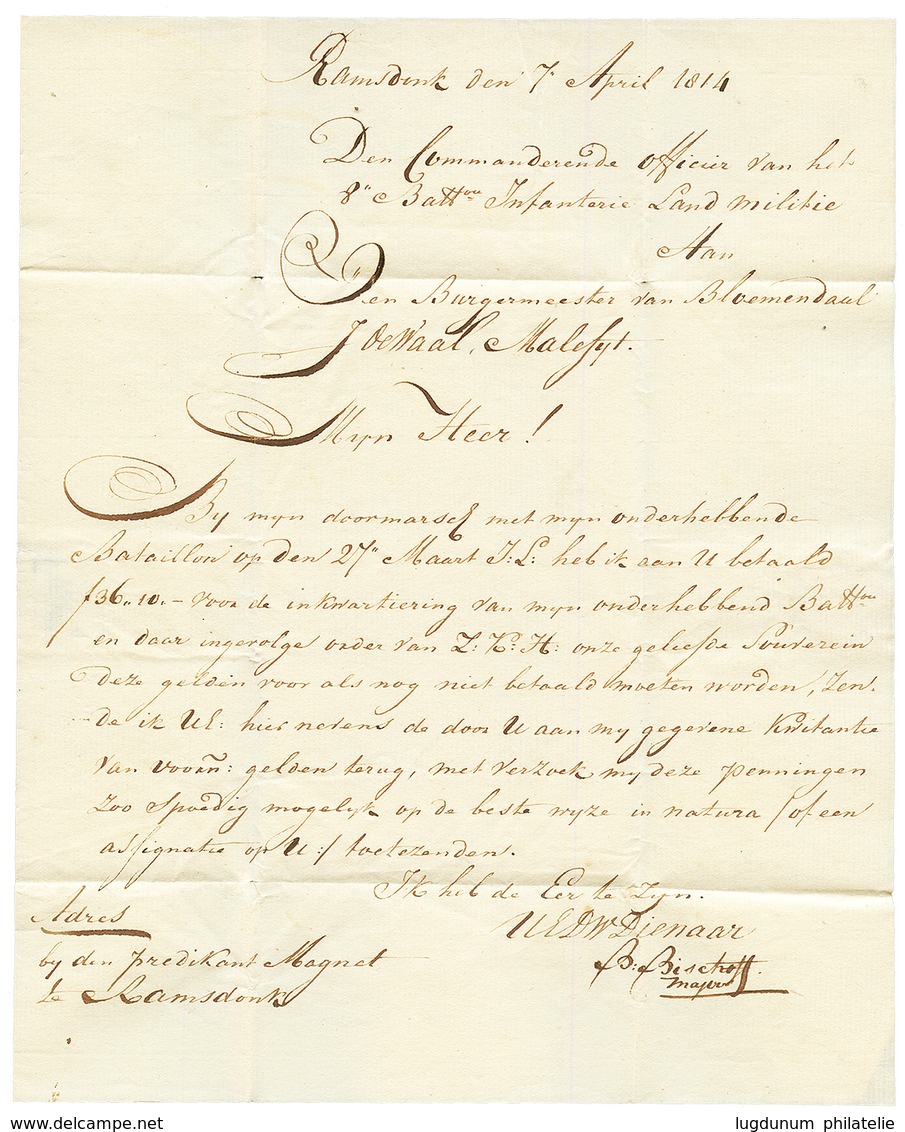 Ramsdonk den 7e April 1814
Den Commanderende officier van het
8e Batton Infanterie Land militie
Aan
Den Burgermeester van Bloemendaal
J de Waal, Malefyt.
Myn Heer!
By myn doormarsch met myn onderhebbende
Bataillon op den 27e Maart J:L: heb ik aan U betaald
f36,,10,,— voor de inkwartiering van myn onderhebbend Batton
en daar ingevolge order van Z:K:H: onze geliefde Souverein
deze gelden voor als nog niet betaald moeten worden, Zen-
de ik UE: hier nevens de door U aan my gegevene Kwitantie
van voorn: gelden terug, met verzoek my deze penningen
zoo spoedig mogelyk op de beste wyze in natura /of een
assignatie op U:/ toetezenden.
Ik heb de Eer te Zyn.
UEDWDienaar
Bischoff.
Majoor
Adres
by den predikant Magnet
te Ramsdonk
www.delcampe.net
lugdunum philatelie